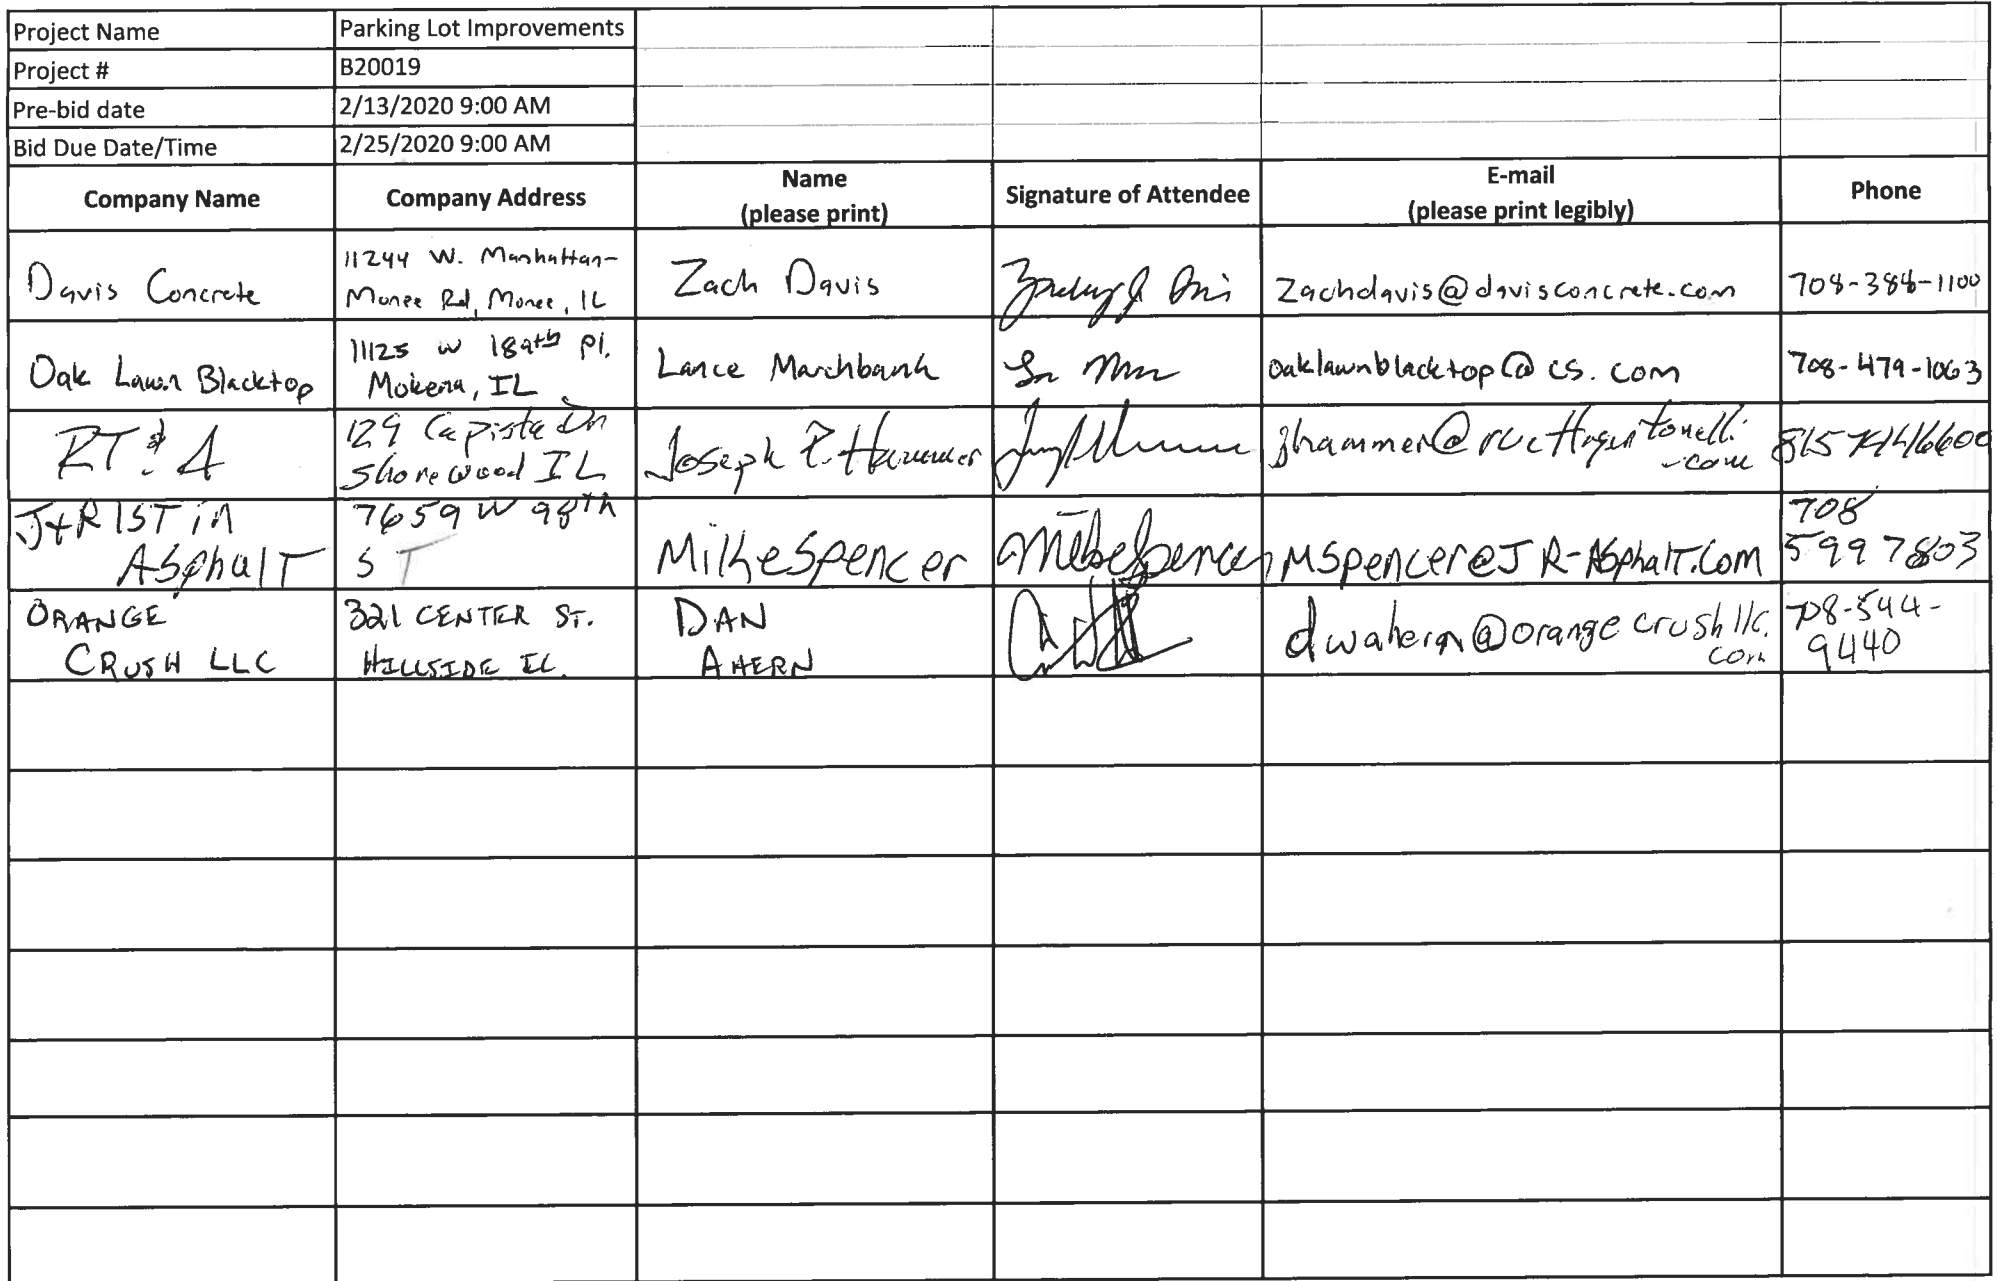 Project Name Parking Lot Improvements
Project # B20019
Pre-bid date 2/13/2020 9:00 AM
Bid Due Date/Time 2/25/2020 9:00 AM
Company Name Company Address Name (please print) Signature of Attendee E-mail (please print legibly) Phone
Davis Concrete
11244 W. Manhattan-
Monee Rd, Monee, IL
Zach Davis
Zachdavis@davisconcrete.com
708-384-1100
Oak Lawn Blacktop
11125 W 189th Pl.
Mokena, IL
Lance Marchbank
oaklawnblacktop@cs.com
708-479-1063
RT & A
129 Capista Dr
Shorewood IL
Joseph Hammer
815
J+R 1ST in
Asphalt
7659 W 98th
ST
Mike Spencer
Mike Spencer
MSpencer@JR-Asphalt.com
708
599 7803
ORANGE
CRUSH LLC
321 CENTER ST.
HILLSIDE IL.
DAN
AHERN
dwahern@orangecrushllc.
com
708-544-
9440